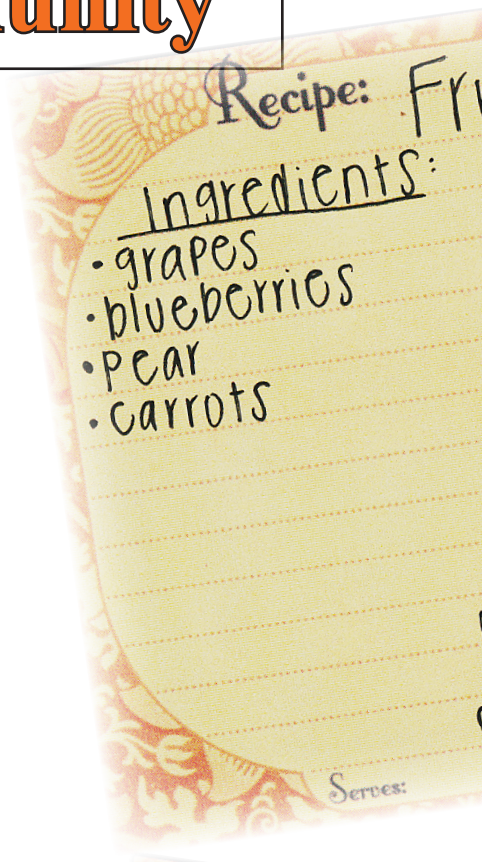 unity
Recipe: Fru
Ingredients:
• grapes
• blueberries
• pear
• carrots
Serves: